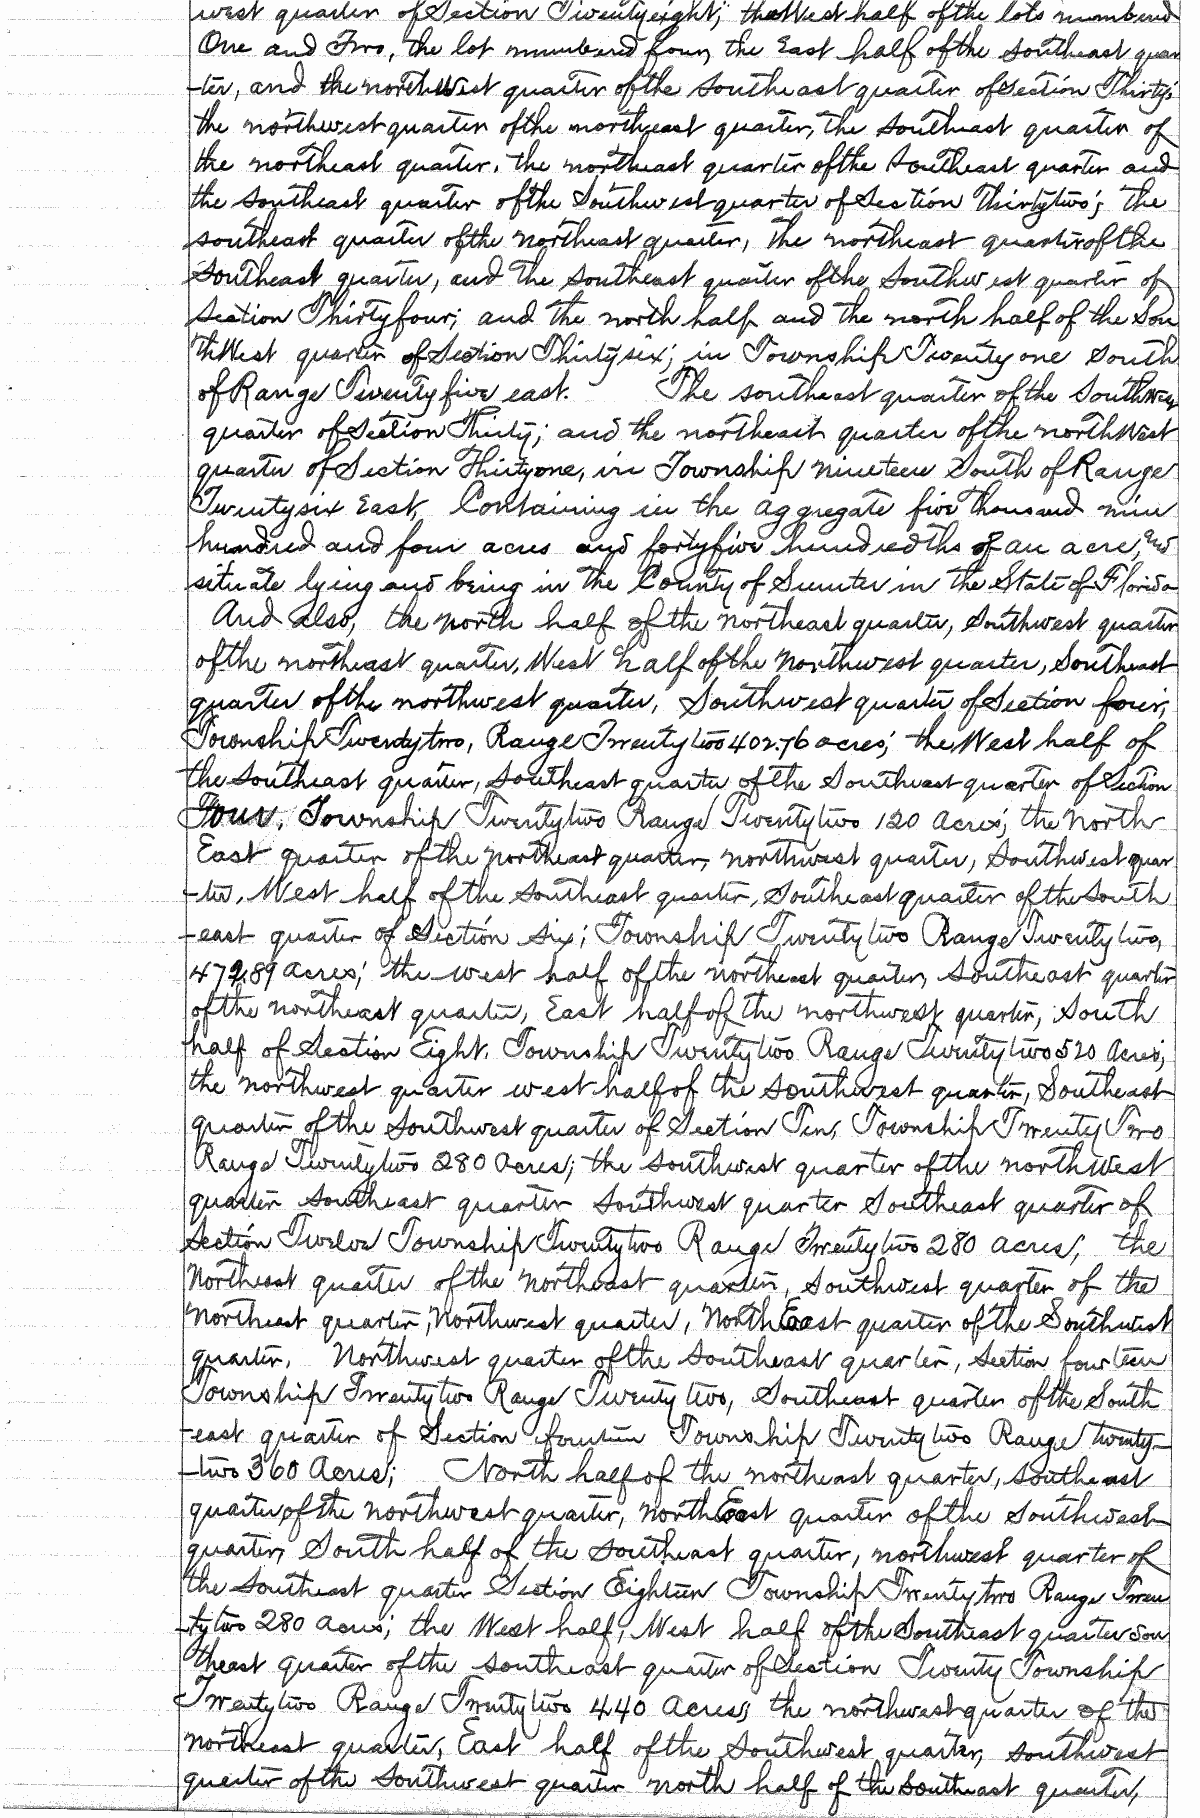 west quarter of Section Twentyeight; the West half of the lots numbered
One and Two, the lot numbered four, the East half of the southeast quar
-ter, and the northwest quarter of the southeast quarter of Section Thirty;
the northwest quarter of the northeast quarter, the southeast quarter of
the northeast quarter, the northeast quarter of the southeast quarter and
the southeast quarter of the Southwest quarter of Section Thirtytwo; the
southeast quarter of the northeast quarter, the northeast quarter of the
Southeast quarter, and the southeast quarter of the southwest quarter of
Section Thirtyfour; and the north half and the north half of the Sou
thWest quarter of Section Thirtysix; in Township Twenty one South
of Range Twentyfive east. The southeast quarter of the Southwest
quarter of Section Thirty; and the northeast quarter of the northWest
quarter of Section Thirtyone, in Township nineteen South of Range
Twentysix East, Containing in the aggregate five thousand nine
hundred and four acres and fortyfive hundredths of an acre, and
situate lying and being in the County of Sumter in the State of Florida
And also, the north half of the northeast quarter, Southwest quarter
of the northeast quarter, West half of the Northwest quarter, Southeast
quarter of the northwest quarter, Southwest quarter of Section four,
Township Twentytwo, Range Twentytwo 402.76 acres; the West half of
the Southeast quarter, Southeast quarter of the Southeast quarter of Section
Four, Township Twentytwo Range Twentytwo 120 acres; the North
East quarter of the northeast quarter, northwest quarter, Southwest quar
-ter, West half of the Southeast quarter, Southeast quarter of the South
-east quarter of Section six; Township Twentytwo Range Twentytwo,
472.89 acres; the west half of the northeast quarter, Southeast quarter
of the northeast quarter, East half of the northwest quarter, South
half of Section Eight, Township Twentytwo Range Twentytwo 520 Acres;
the northwest quarter west half of the Southwest quarter, Southeast
quarter of the Southwest quarter of Section Ten, Township Twenty Two
Range Twentytwo 280 Acres; the Southwest quarter of the northWest
quarter southeast quarter southwest quarter Southeast quarter of
Section Twelve Township Twentytwo Range Twentytwo 280 acres; the
Northeast quarter of the Northeast quarter, Southwest quarter of the
Northeast quarter, Northwest quarter, North East quarter of the Southwest
quarter, Northwest quarter of the Southeast quarter, Section fourteen
Township Twentytwo Range Twentytwo, Southeast quarter of the South
-east quarter of Section fourteen Township Twentytwo Range twenty-
-two 360 Acres; North half of the northeast quarter, southeast
quarter of the northwest quarter, North East quarter of the Southwest
quarter, South half of the Southeast quarter, northwest quarter of
the Southeast quarter Section Eighteen Township Twentytwo Range Twen
-tytwo 280 acres; the West half, West half of the Southeast quarter Sou
theast quarter of the southeast quarter of Section Twenty Township
Twentytwo Range Twentytwo 440 acres; the northwest quarter of the
Northeast quarter, East half of the Southwest quarter, southwest
quarter of the Southwest quarter north half of the Southeast quarter,